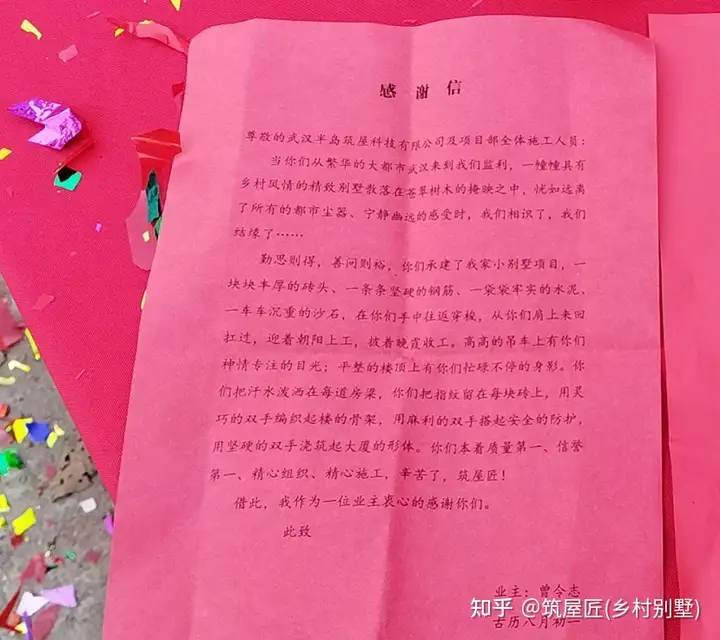 感谢信
尊敬的武汉半岛筑屋科技有限公司及项目部全体施工人员：
当你们从繁华的大都市武汉来到我们监利，一幢幢具有
乡村风情的精致别墅散落在苍翠树木的掩映之中，恍如远离
了所有的都市尘嚣、宁静幽远的感受时，我们相识了，我们
结缘了……
勤思则得，善问则裕，你们承建了我家小别墅项目，一
块块丰厚的砖头、一条条坚硬的钢筋、一袋袋牢实的水泥、
一车车沉重的沙石，在你们手中往返穿梭，从你们肩上来回
扛过，迎着朝阳上工，披着晚霞收工。高高的吊车上有你们
神情专注的目光；平整的楼顶上有你们忙碌不停的身影。你
们把汗水泼洒在每道房梁，你们把指纹留在每块砖上，用灵
巧的双手编织起楼的骨架，用麻利的双手搭起安全的防护，
用坚硬的双手浇筑起大厦的形体。你们本着质量第一、信誉
第一、精心组织、精心施工，辛苦了，筑屋匠！
借此，我作为一位业主衷心的感谢你们。
此致
业主：曾令志
古历八月初二
知乎 @筑屋匠(乡村别墅)